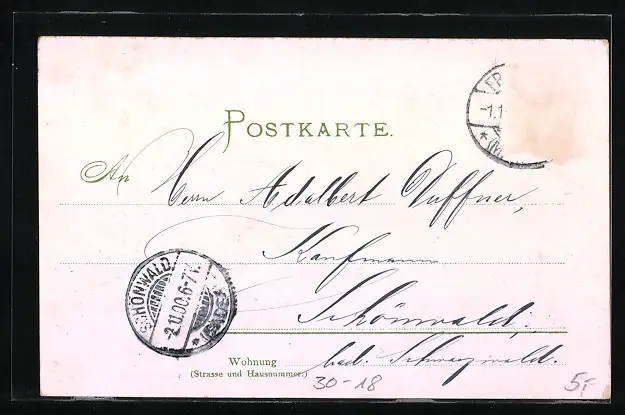 POSTKARTE.
An Herrn Adalbert Duffner,
Kaufmann
Schönwald,
bad. Schwarzwald.
Wohnung
(Strasse und Hausnummer.)
SCHÖNWALD
-2.11.00.6-7V.
* (BADEN) *
-1.1
30-18
5,-